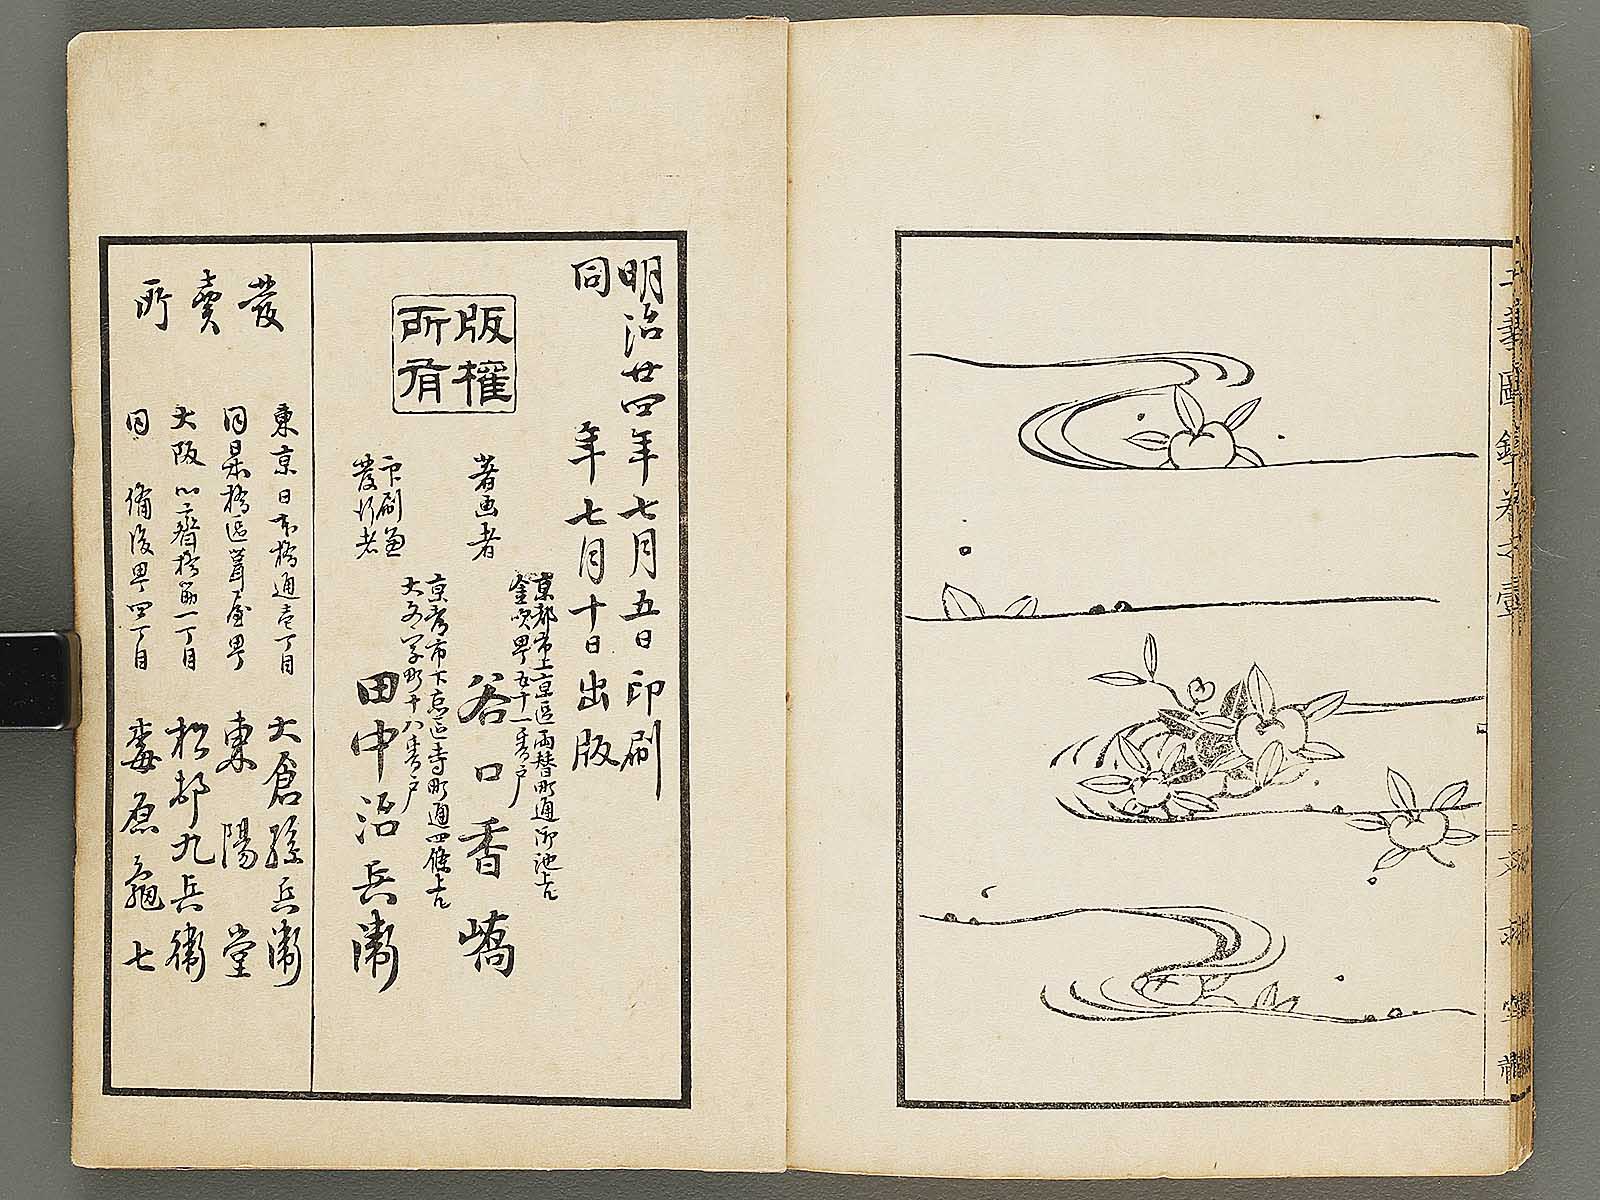 明治廿四年七月五日印刷
同年七月十日出版
版權
所有
京都市上京區両替町通御池上ル
金吹町五十一番戸
著画者
谷口香嶠
京都市下京區寺町通四條上ル
大文字町十八番戸
印刷兼
發行者
田中治兵衛
發賣所
東京日本橋通壱丁目 大倉孫兵衛
同京橋區葺屋町 東陽堂
大阪心齋橋筋一丁目 松村九兵衛
同 備後町四丁目 梅原亀七
圖
巻之壹
文求堂